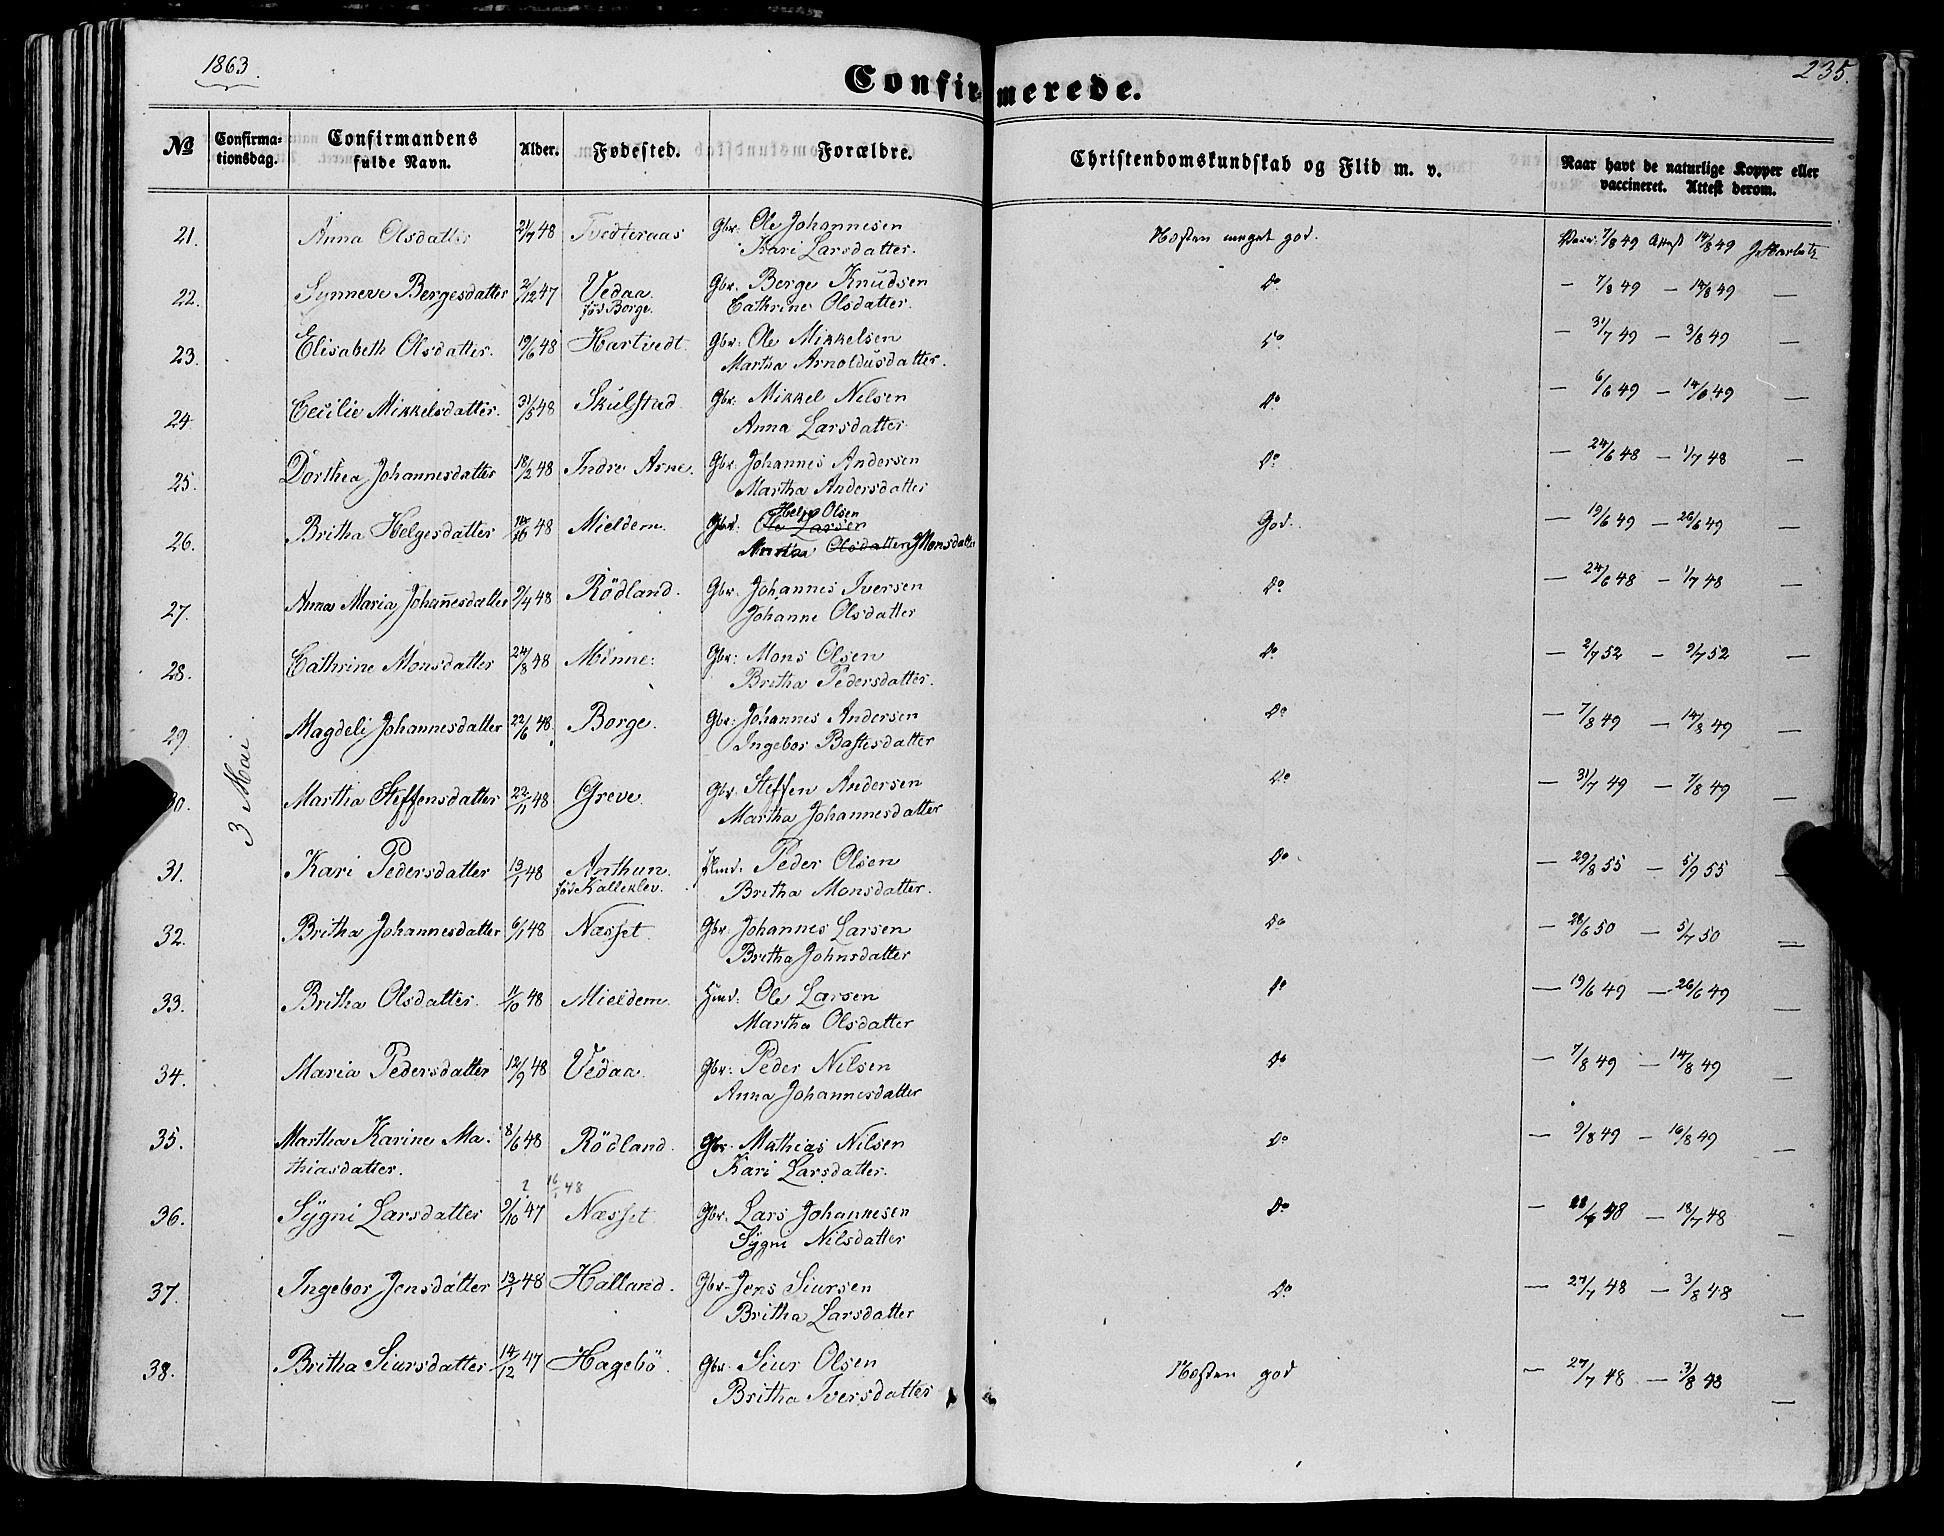 1863.
235.
Confirmerede.
№
Confirma-
tionsdag.
Confirmandens
fulde Navn.
Alder.
Fødested.
Forældre.
Christendomskundskab og Flid m. v.
Naar havt de naturlige Kopper eller
vaccineret. Attest derom.
3 Mai
21. Anna Olsdatter 21/7 48 Tvedteraas Gbr: Ole Johannesen Næsten meget god. Vacc. 7/8 49 Attest 14/8 49
Kari Larsdatter.
22. Synneve Bergesdatter 2/12 47 Vedaa. Gbr. Berge Knudsen Do — 7/8 49 — 14/8 49 —
fød Borge. Cathrine Olsdatter.
23. Elisabeth Olsdatter. 19/6 48 Hartvedt. Gbr: Ole Mikkelsen Do — 31/7 49 — 3/8 49 —
Martha Arnoldusdatter.
24. Cecilie Mikkelsdatter. 31/5 48 Skulstad. Gbr: Mikkel Nilsen Do — 6/6 49 — 14/6 49 —
Anna Larsdatter
25. Dorthea Johannesdatter 18/2 48 Indre Arne. Gbr: Johannes Andersen Do — 24/6 48 — 1/7 48 —
Martha Andersdatter
Helge Olsen
26. Britha Helgesdatter 48 Mieldem. Ole Larsen God. — 19/6 49 — 26/6 49 —
Martha Olsdatter Monsdatter
27. Anna Maria Johan̄esdatter 9/4 48 Rödland. Gbr. Johannes Iversen Do — 24/6 48 — 1/7 48 —
Johanne Olsdatter
28. Cathrine Monsdatter 24/8 48 Minne: Gbr: Mons Olsen Do — 2/7 52 — 9/7 52 —
Britha Pedersdatter.
29. Magdeli Johannesdatter 22/6 48. Borge. Gbr: Johannes Andersen Do — 7/8 49 — 14/8 49 —
Ingebor Bastesdatter
30. Martha Steffensdatter 22/11 48 Greve. Gbr. Steffen Andersen Do — 31/7 49 — 7/8 49 —
Martha Johannesdatter
31. Kari Pedersdatter 13/1 48 Arthun. Peder Olsen Do — 29/8 55 — 5/9 55 —
fød Kalleklev. Britha Monsdatter.
32. Britha Johannesdatter 6/1 48 Næsset. Gbr. Johannes Larsen Do — 28/6 50 — 5/7 50 —
Britha Johnsdatter
33. Britha Olsdatter. 11/10 48 Mieldem. Hmd: Ole Larsen Do — 19/6 49 — 26/6 49 —
Martha Olsdatter
34. Maria Pedersdatter 12/9 48 Vedaa. Gbr: Peder Nilsen Do — 7/8 49 — 14/8 49 —
Anna Johannesdatter
35. Martha Karine Ma- 8/6 48 Rödland. Gbr. Mathias Nilsen Do — 9/8 49 — 16/8 49
thiasdatter. Kari Larsdatter.
? 16/1 48
36. Sygni Larsdatter 9/10 47 Næsset. Gbr. Lars Johannesen Do — 48 — 18/7 48 —
Sygni Nilsdatter
37. Ingebor Jensdatter 13/1 48 Halland. Gbr. Jens Siursen Do — 27/7 48 — 3/8 48 —
Britha Larsdatter
38. Britha Siursdatter 14/12 47 Hagebö. Gbr. Siur Olsen Næsten god — 27/7 48 — 3/8 48 —
Britha Iversdatter